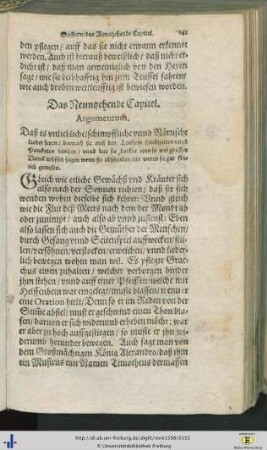 Das Neunzehende Capitel. 141
den pflegen / auff das sie nicht etwann erkennet
werden. Auch ist hierauß beweißlich / daß nicht er-
dicht ist / daß man gemeiniglich von den Hexen
sagt / wie sie leibhafftig hin zum Teuffel fahren /
wie auch droben weitleufftig ist bewiesen worden.
Das Neunzehende Capitel.
Argumentum.
Daß es unliebliche / schimpffliche unnd Närrische
Lieder seyen / darnach sie auff
und
Danck wissen sagen wenn sie
lich gewesen.
Gleich wie etliche Gewächs und Kräuter sich
also nach der Sonnen richten / daß sie sich
wenden wohin dieselbe sich kehret: Unnd gleich
wie die Flut deß Meers nach dem der Mond ab
oder zunimpt / auch also ab unnd zufleust: Eben
also lassen sich auch die Gemüther der Menschen /
durch Gesang vnnd Seitenspiel auffwecken / stil-
len / versöhnen / verstocken / erweichen / unnd lieder-
lich bewegen wohin man wil. Es pflegte Grac-
chus einen zuhalten / welcher verborgen hinder
ihm stehen / vnnd auff einer Pfeiffen / welche mit
Helffenbein war eingelegt / muste blassen / wenn er
eine Oration hielt / Denn so er im Reden von der
Stime abfiel / must er geschwind einen Thon blas-
sen / damit er sich widerumb erheben möcht: war
er aber zu hoch auffgestiegen / so muste er ihn wi-
derumb herunder bewegen. Auch sagt man von
dem Großmächtigen König Alexandro / daß ihn
ein Musicus mit Namen Timotheus dermassen
http://dl.ub.uni-freiburg.de/diglit/
Universitätsbibliothek Freiburg